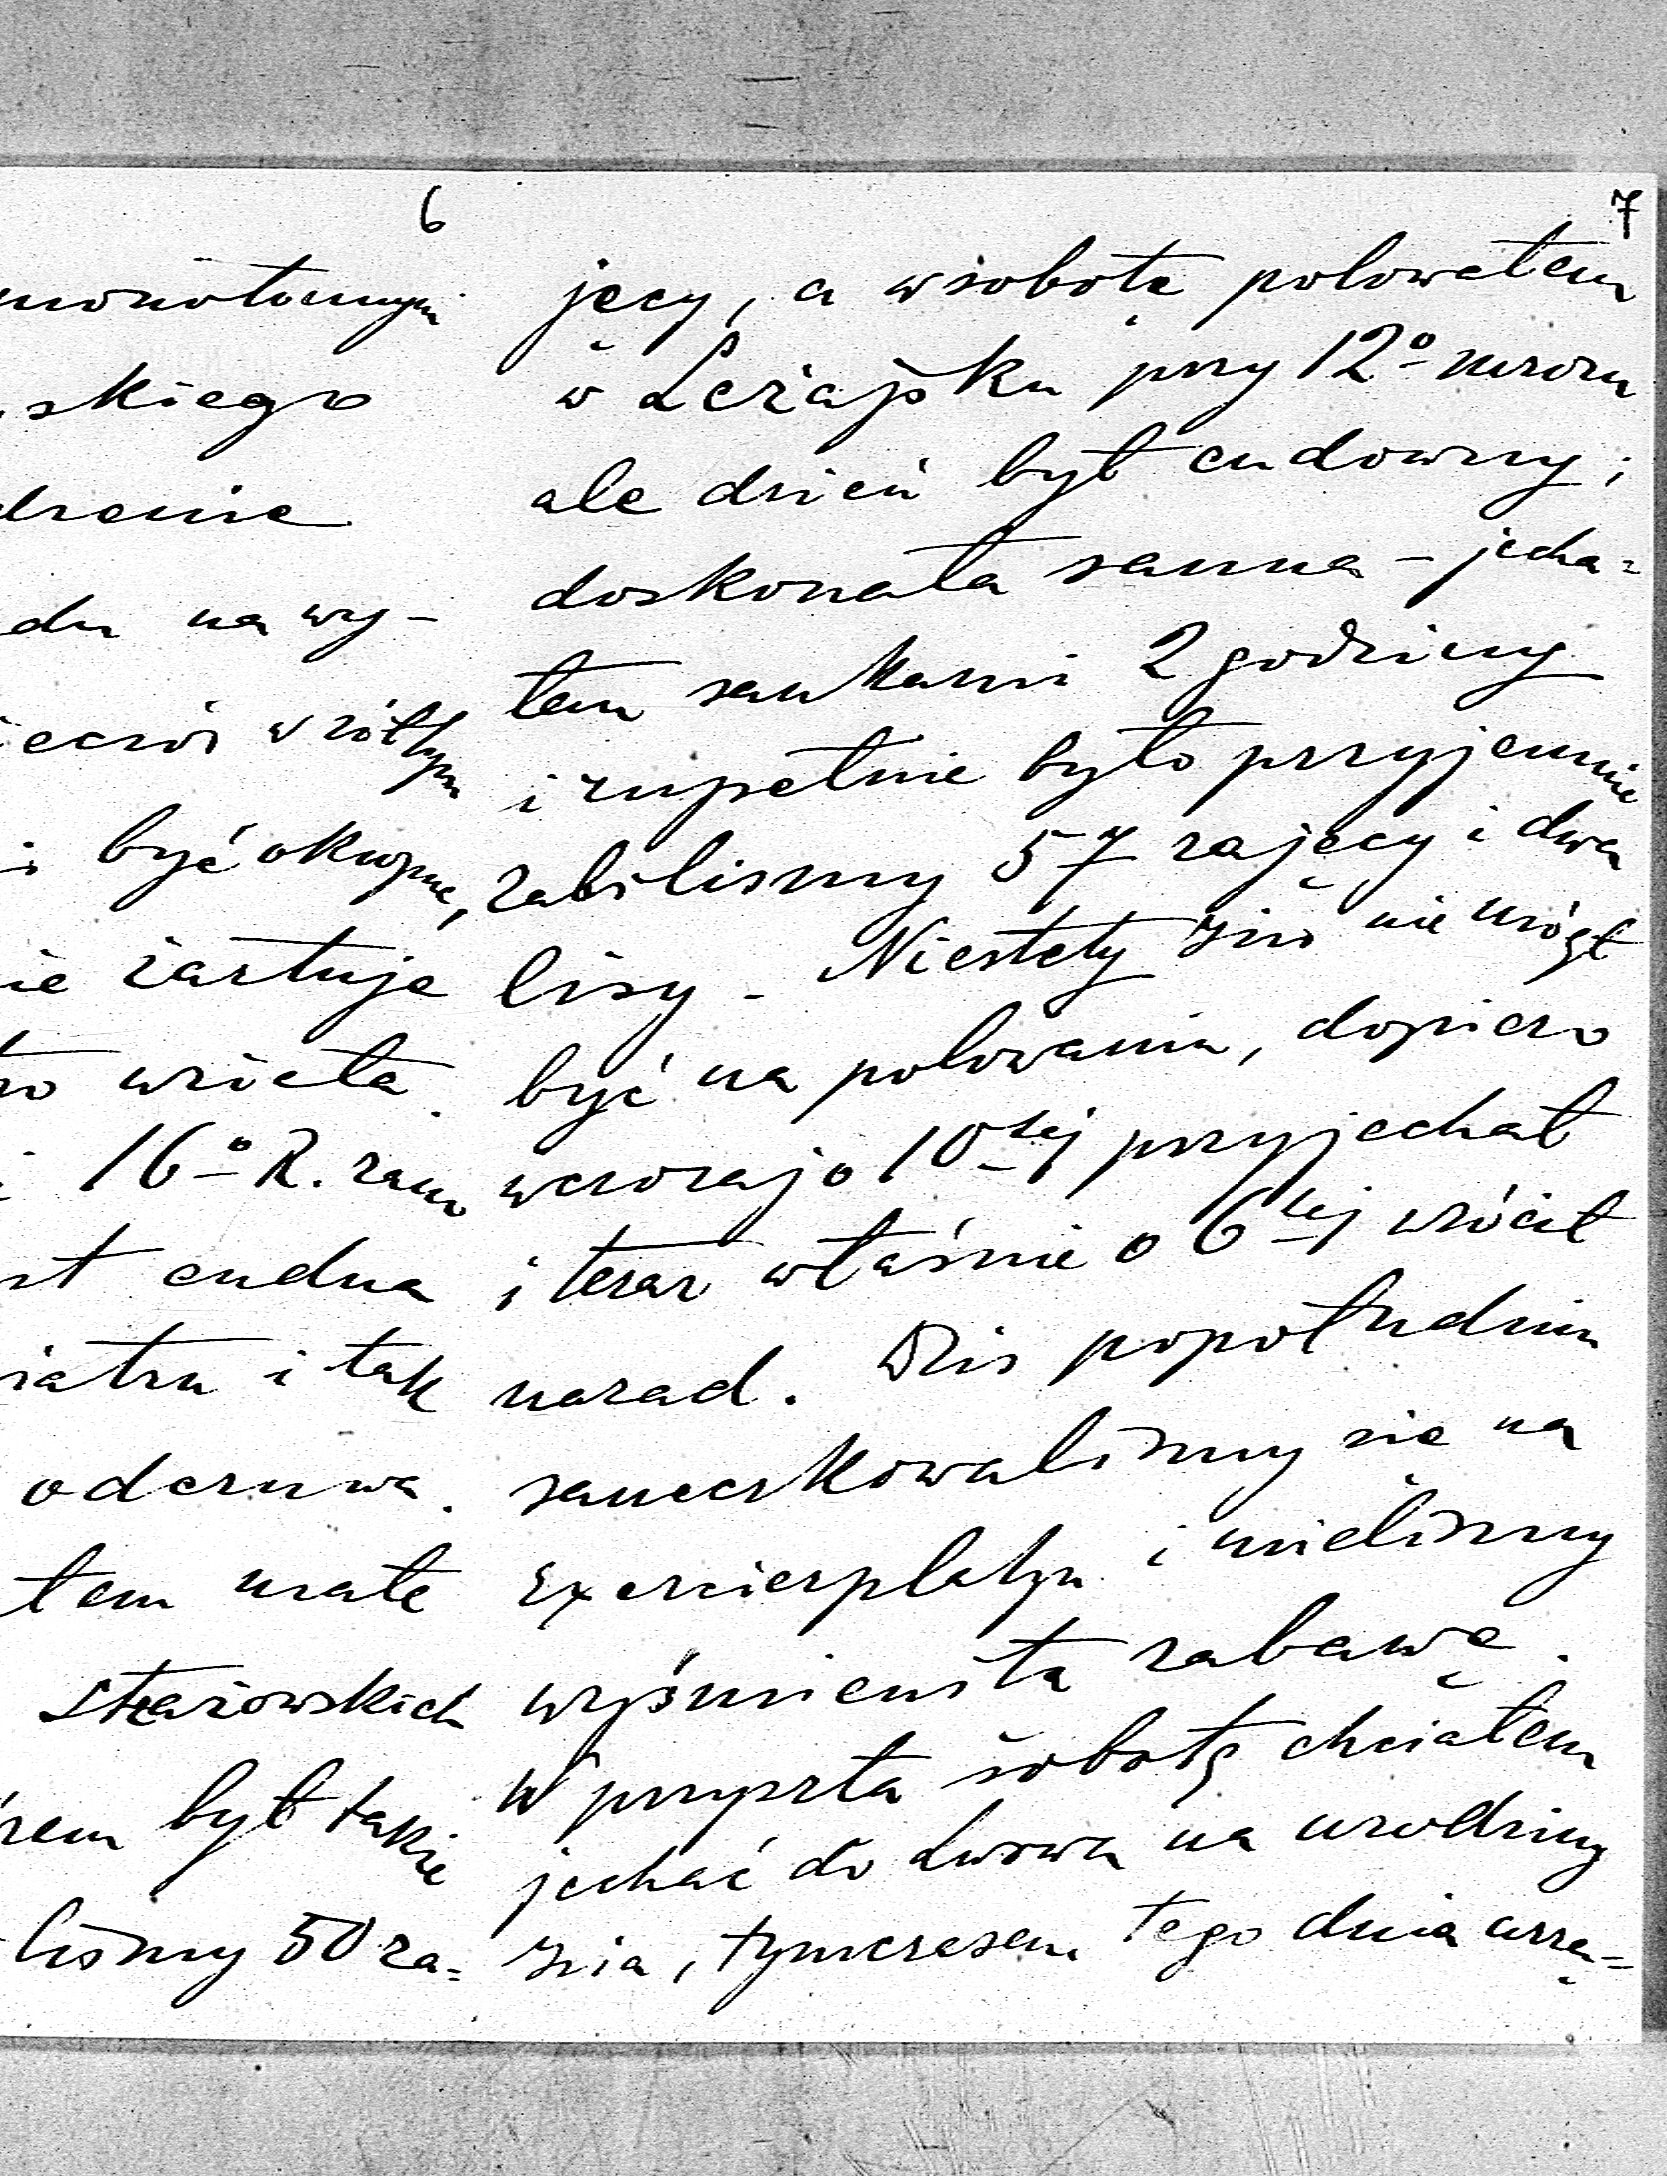 6
monotonnym
skiego
drenie
du na wy-
żółtym
być okropne,
nie żartuje
wzięta.
16° R. rano
st cudna
iatru i tak
odczuwa.
tem małe
Starzowskich
rem był także
liśmy 50 za-
7
jęcy, a w sobotę polowałem
w Leżajsku przy 12° mrozu
ale dzień był cudowny;
doskonała sanna - jecha=
łem sankami 2 godziny
i zupełnie było przyjemnie
zabiliśmy 57 zajęcy i dwa
lisy - Niestety Zió nie mógł
być na polowaniu, dopiero
wczoraj o 10tej przyjechał
i teraz właśnie o 6tej wrócił
nazad. Dziś popołudniu
saneczkowaliśmy się na
Exercierplatzu i mieliśmy
wyśmienitą zabawę.
W przyszłą sobotę chciałem
jechać do Lwowa na urodziny
Zia, tymczasem tego dnia urzą=